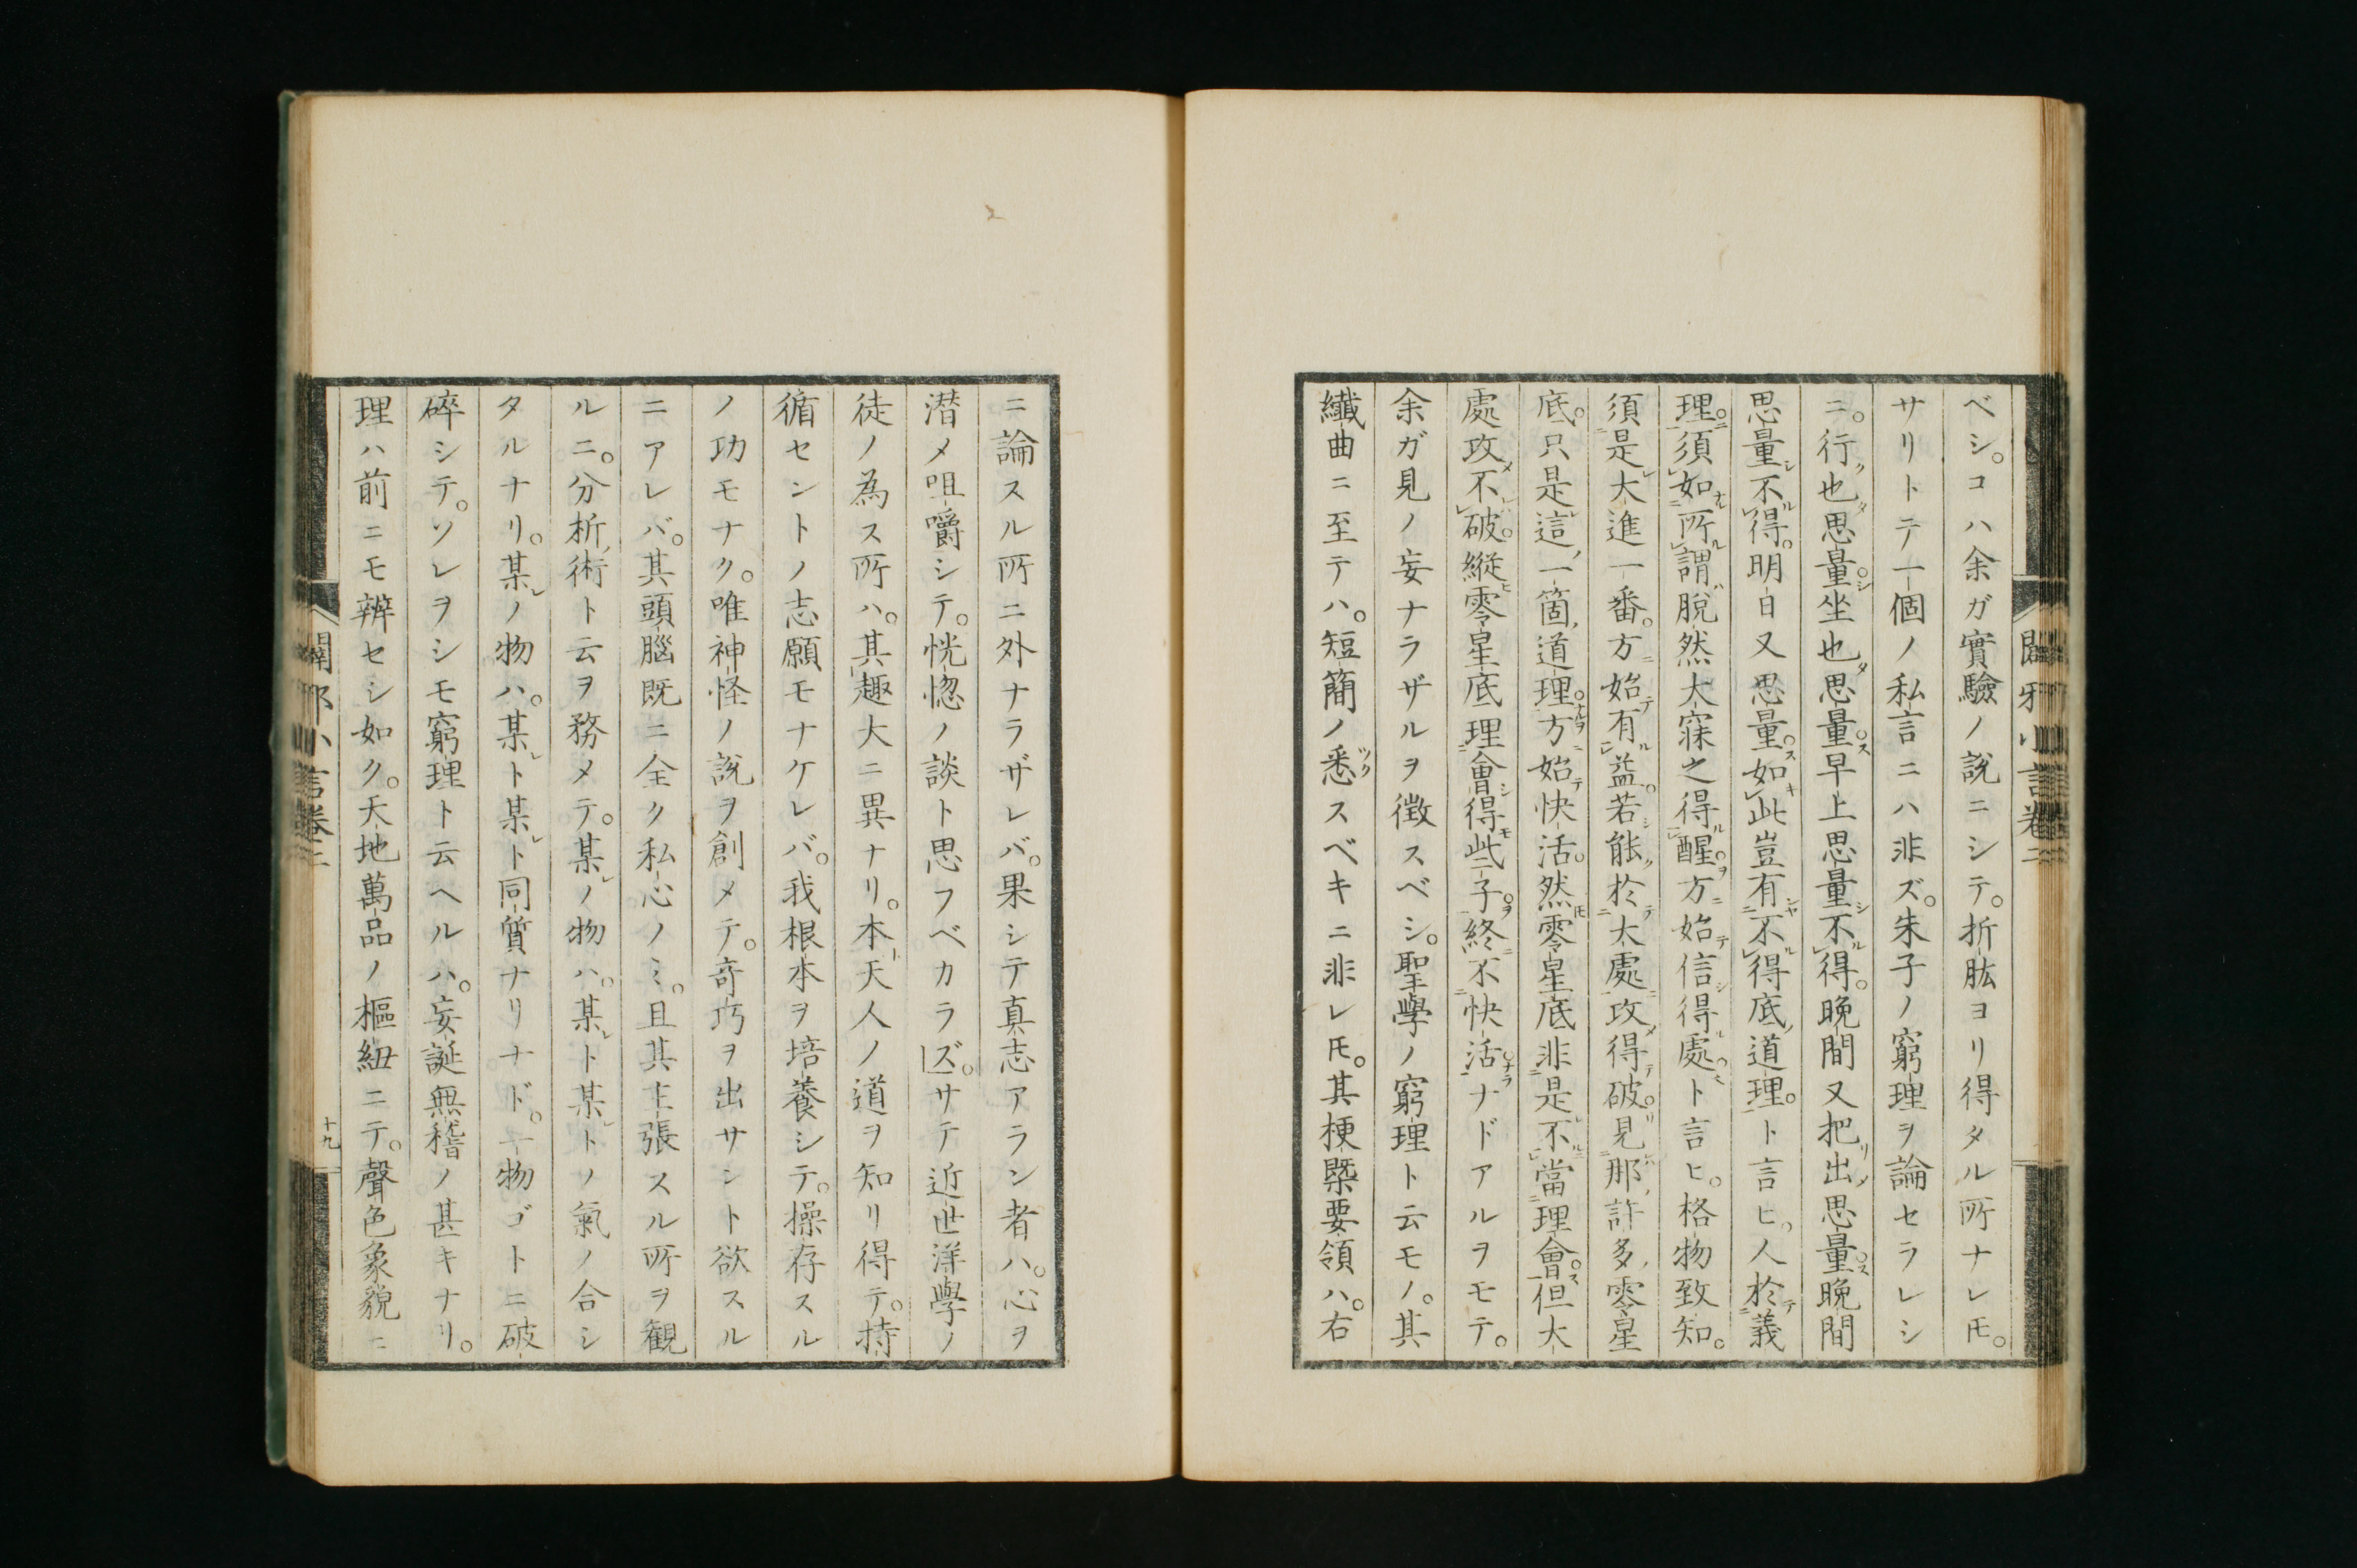 ベシ。コハ余ガ實驗ノ說ニシテ。折肱ヨリ得タル所ナレ𪜈。
サリトテ一個ノ私言ニハ非ズ。朱子ノ窮理ヲ論セラレシ
ニ。行也思量。坐也思量。早上思量不得。晚間又把出思量。晚間
思量不得。明日又思量。如此豈有不得底道理。ト言ヒ。人於義
理。須如所謂脫然大寐之得醒。方始信得處ト言ヒ。格物致知。
須是大進一番。方始有益。若能於大處攻得破。見那許多零星
底。只是這一箇道理。方始快活。然零星底非是不當理會。但大
處攻不破。縱零星底理會得些子。終不快活ナドアルヲモテ。
余ガ見ノ妄ナラザルヲ徴スベシ。聖學ノ窮理ト云モノ。其
纎曲ニ至テハ。短簡ノ悉スベキニ非レ𪜈。其梗槩要領ハ。右
ニ論スル所ニ外ナラザレバ。果シテ真志アラン者ハ。心ヲ
潜メ咀嚼シテ。恍惚ノ談ト思フベカラズ。サテ近世洋學ノ
徒ノ為ス所ハ。其趣大ニ異ナリ。本天人ノ道ヲ知リ得テ。持
循セントノ志願モナケレバ。我根本ヲ培養シテ。操存スル
ノ功モナク。唯神怪ノ說ヲ創メテ。奇巧ヲ出サント欲スル
ニアレバ。其頭腦既ニ全ク私心ノミ。且其主張スル所ヲ観
ルニ。分析術ト云ヲ務メテ。某ノ物ハ。某ト某トノ氣ノ合シ
タルナリ。某ノ物ハ。某ト某ト同質ナリナド。一物ゴトニ破
碎シテ。ソレヲシモ窮理ト云ヘルハ。妄誕無稽ノ甚キナリ。
理ハ前ニモ辨セシ如ク。天地萬品ノ樞紐ニテ。聲色象貌ニ
闢邪小言卷二
十九